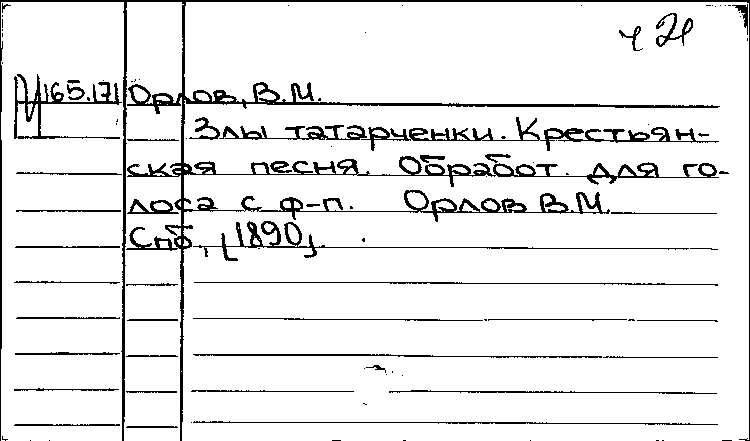 ч 21
165.171 Орлов, В.М.
Злы татарченки. Крестьян-
ская песня. Обработ. для го-
лоса с ф-п. Орлов В.М.
Спб., [1890].